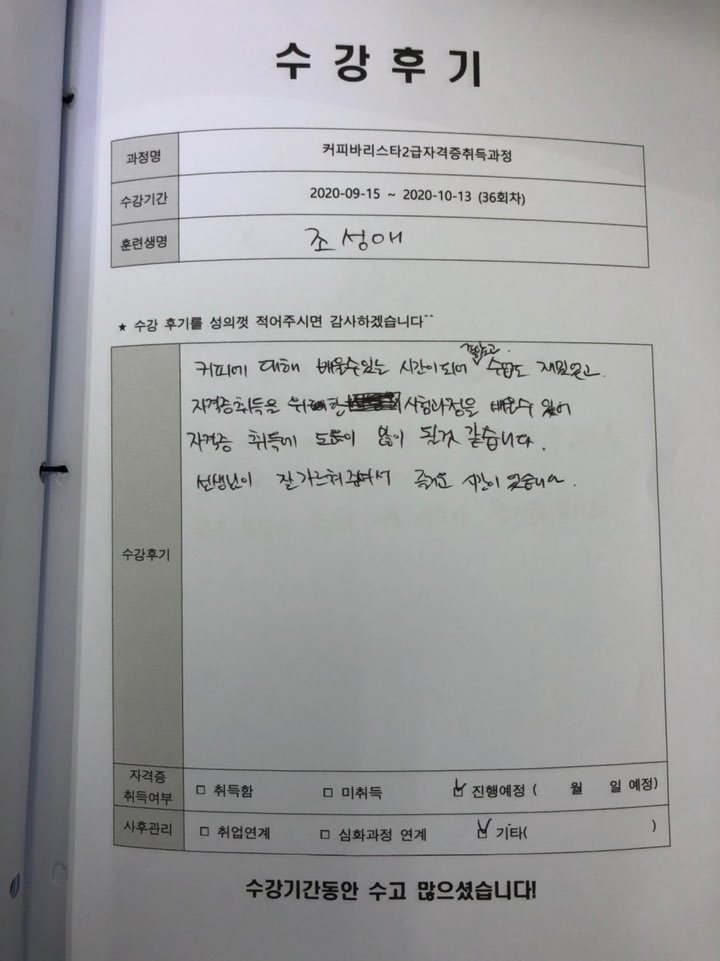 수강후기
과정명 커피바리스타2급자격증취득과정
수강기간 2020-09-15 ~ 2020-10-13 (36회차)
훈련생명 조성애
★ 수강 후기를 성의껏 적어주시면 감사하겠습니다^^
커피에 대해 배울수있는 시간이되어 좋았고. 수업도 재밌었고.
자격증취득을 위한 시험과정을 배울수 있어
자격증 취득에 도움이 많이 될것 같습니다.
선생님이 잘가르쳐주셔서 즐거운 시간이였습니다.
수강후기
자격증
취득여부 □ 취득함 □ 미취득 ☑ 진행예정 ( 월 일 예정)
사후관리 □ 취업연계 □ 심화과정 연계 ☑ 기타( )
수강기간동안 수고 많으셨습니다!